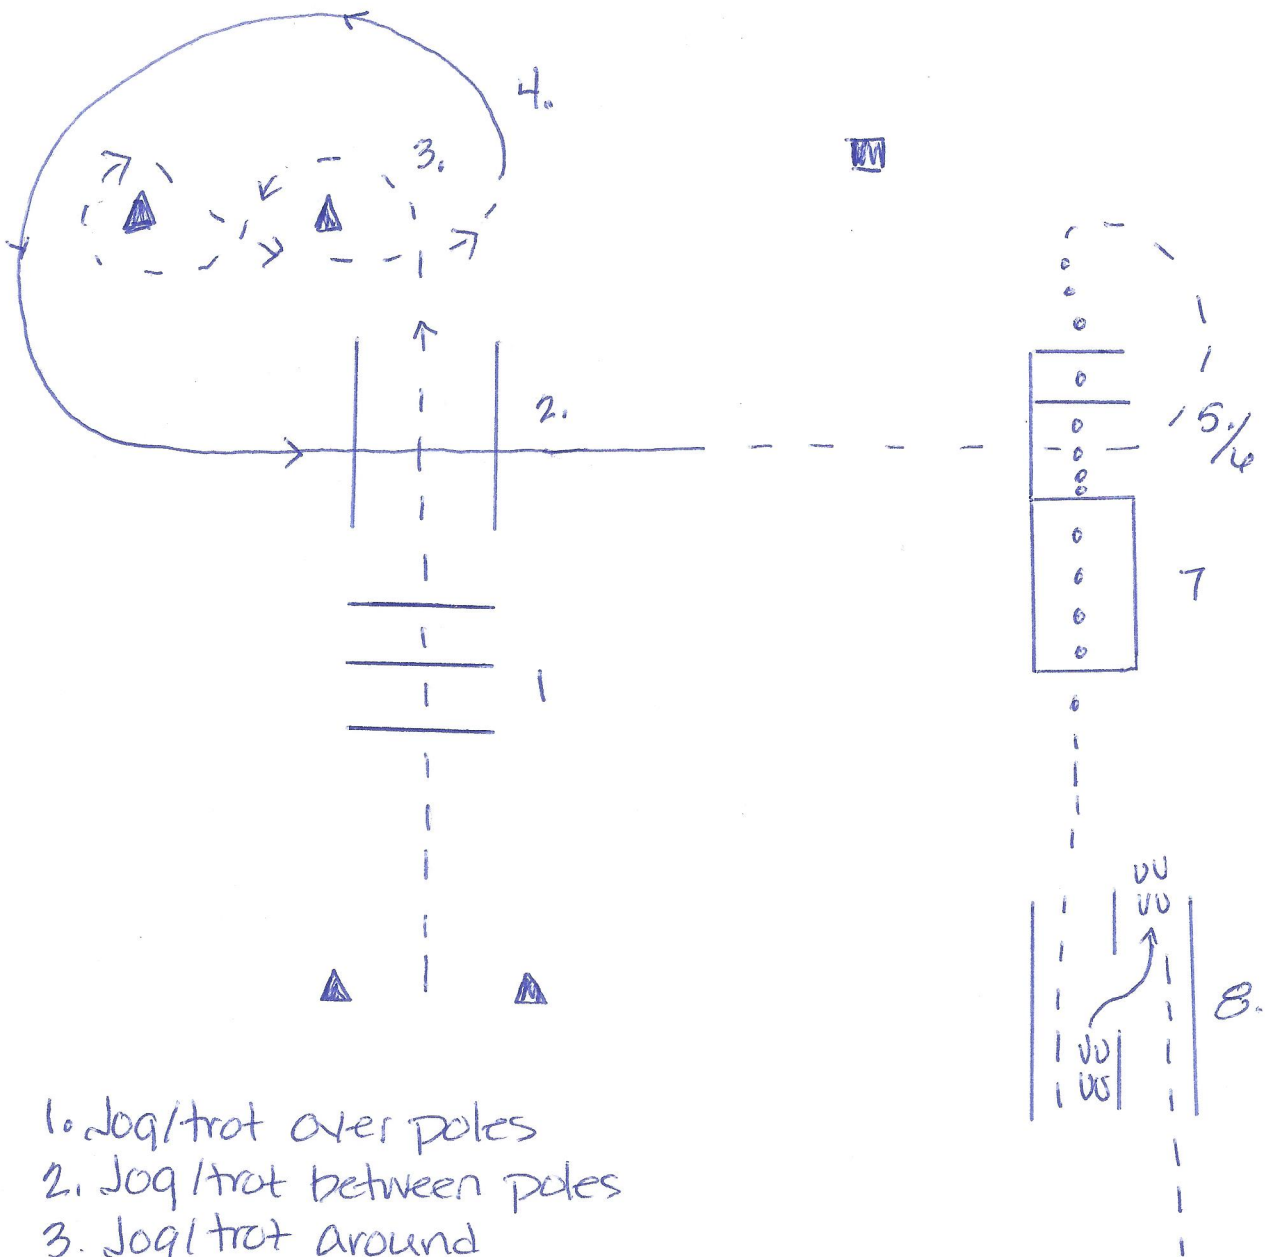 4.
3.
2.
5./6
7
1
8.
1. Jog/trot over poles
2. Jog/trot between poles
3. Jog/trot around